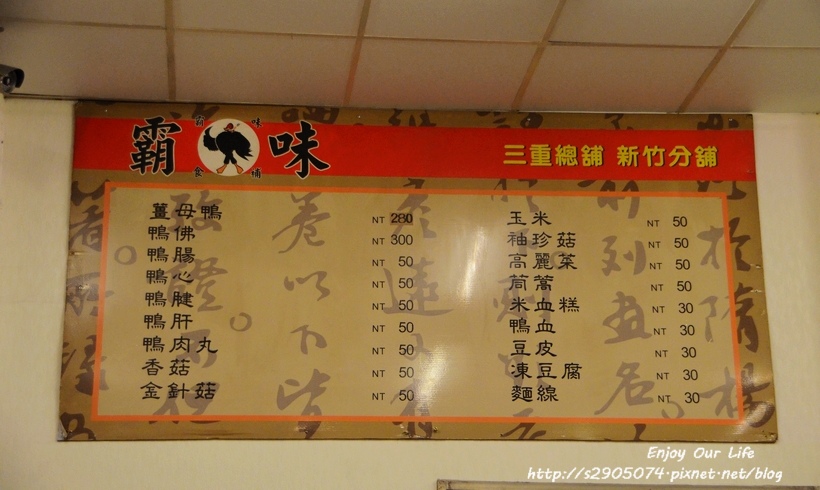 霸 味
霸 味
食 補
三重總舖 新竹分舖
薑母鴨 NT 280
鴨佛 NT 300
鴨腸 NT 50
鴨心 NT 50
鴨腱 NT 50
鴨肝 NT 50
鴨肉丸 NT 50
香菇 NT 50
金針菇 NT 50
玉米 NT 50
袖珍菇 NT 50
高麗菜 NT 50
茼蒿 NT 50
米血糕 NT 30
鴨血 NT 30
豆皮 NT 30
凍豆腐 NT 30
麵線 NT 30
Enjoy Our Life
http://s2905074.pixnet.net/blog